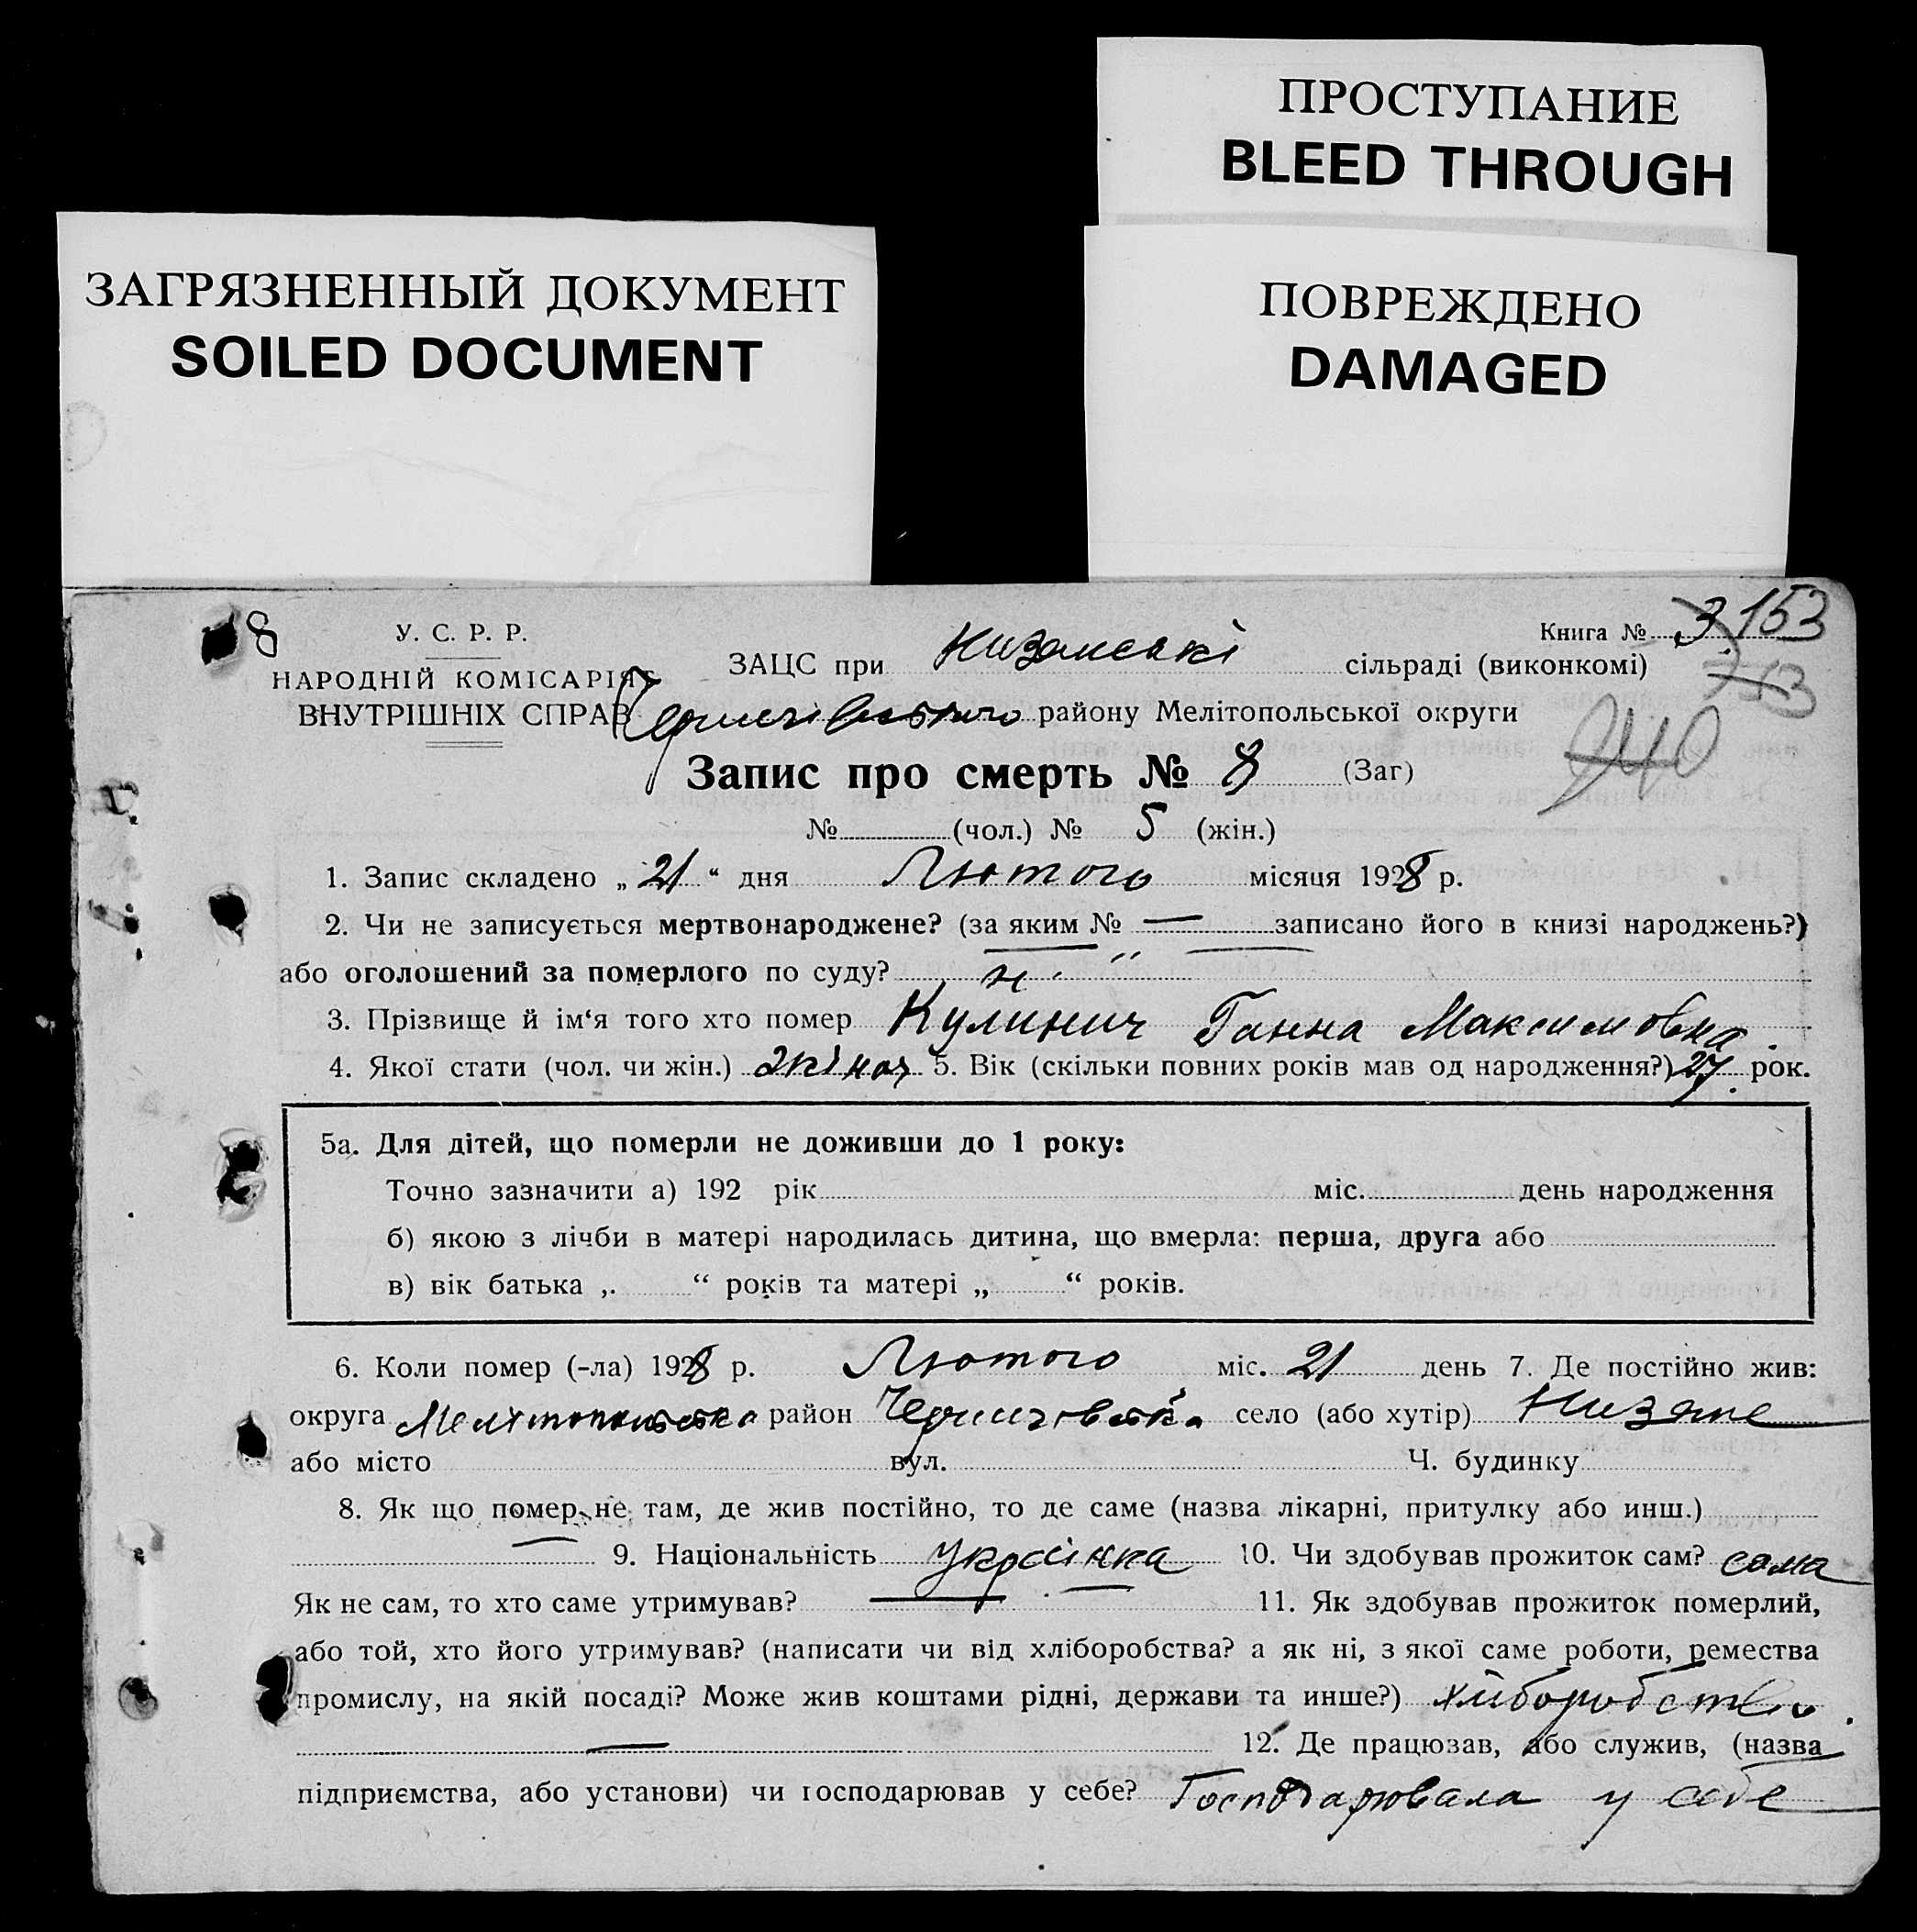 ПРОСТУПАНИЕ
BLEED THROUGH
ЗАГРЯЗНЕННЫЙ ДОКУМЕНТ
SOILED DOCUMENT
ПОВРЕЖДЕНО
DAMAGED
8
У. С. Р. Р.
НАРОДНІЙ КОМІСАРІЯТ
ВНУТРІШНІХ СПРАВ
Книга № 3 153
ЗАЦС при Низянські сільраді (виконкомі)
Чернигівського району Мелітопольської округи
753
240
Запис про смерть № 8 (Заг)
№ (чол.) № 5 (жін.)
1. Запис складено „ 21 “ дня Лютого місяця 1928 р.
2. Чи не записується мертвонароджене? (за яким № — записано його в книзі народжень?)
або оголошений за померлого по суду? н
3. Прізвище й ім‘я того хто помер Кулинич Ганна Максимовна.
4. Якої стати (чол. чи жін.) жіноч 5. Вік (скільки повних років мав од народження?) 27 рок.
5а. Для дітей, що померли не доживши до 1 року:
Точно зазначити а) 192 рік міс. день народження
б) якою з лічби в матері народилась дитина, що вмерла: перша, друга або
в) вік батька „ “ років та матері „ “ років.
6. Коли помер (-ла) 1928 р. Лютого міс. 21 день 7. Де постійно жив:
округа Мелітопольська район Чернигівська село (або хутір) Низяне
або місто вул. Ч. будинку
8. Як що помер не там, де жив постійно, то де саме (назва лікарні, притулку або инш.)
— 9. Національність Українка 10. Чи здобував прожиток сам? сама
Як не сам, то хто саме утримував? — 11. Як здобував прожиток померлий,
або той, хто його утримував? (написати чи від хліборобства? а як ні, з якої саме роботи, ремества
промислу, на якій посаді? Може жив коштами рідні, держави та инше?) хліборобство.
— 12. Де працював, або служив, (назва
підприємства, або установи) чи господарював у себе? Господарювала у себе